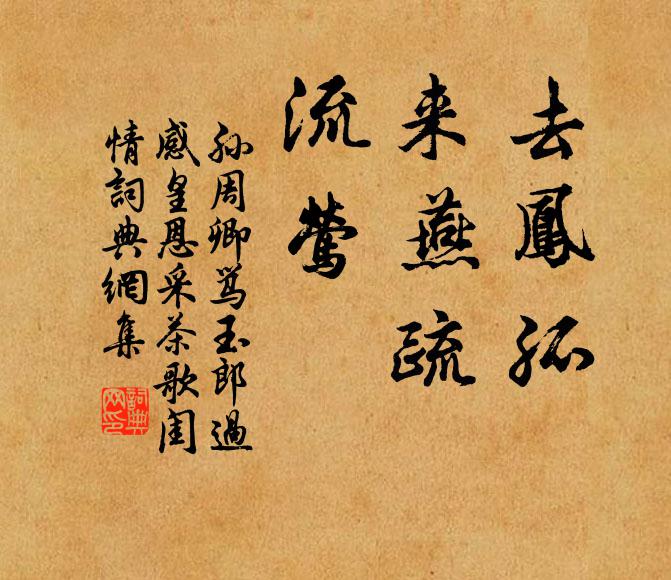 去鳳孤
来燕疏
流鶯
孙周卿骂玉郎過
感皇恩采茶歌闺
情詞典網集
詞典
网印